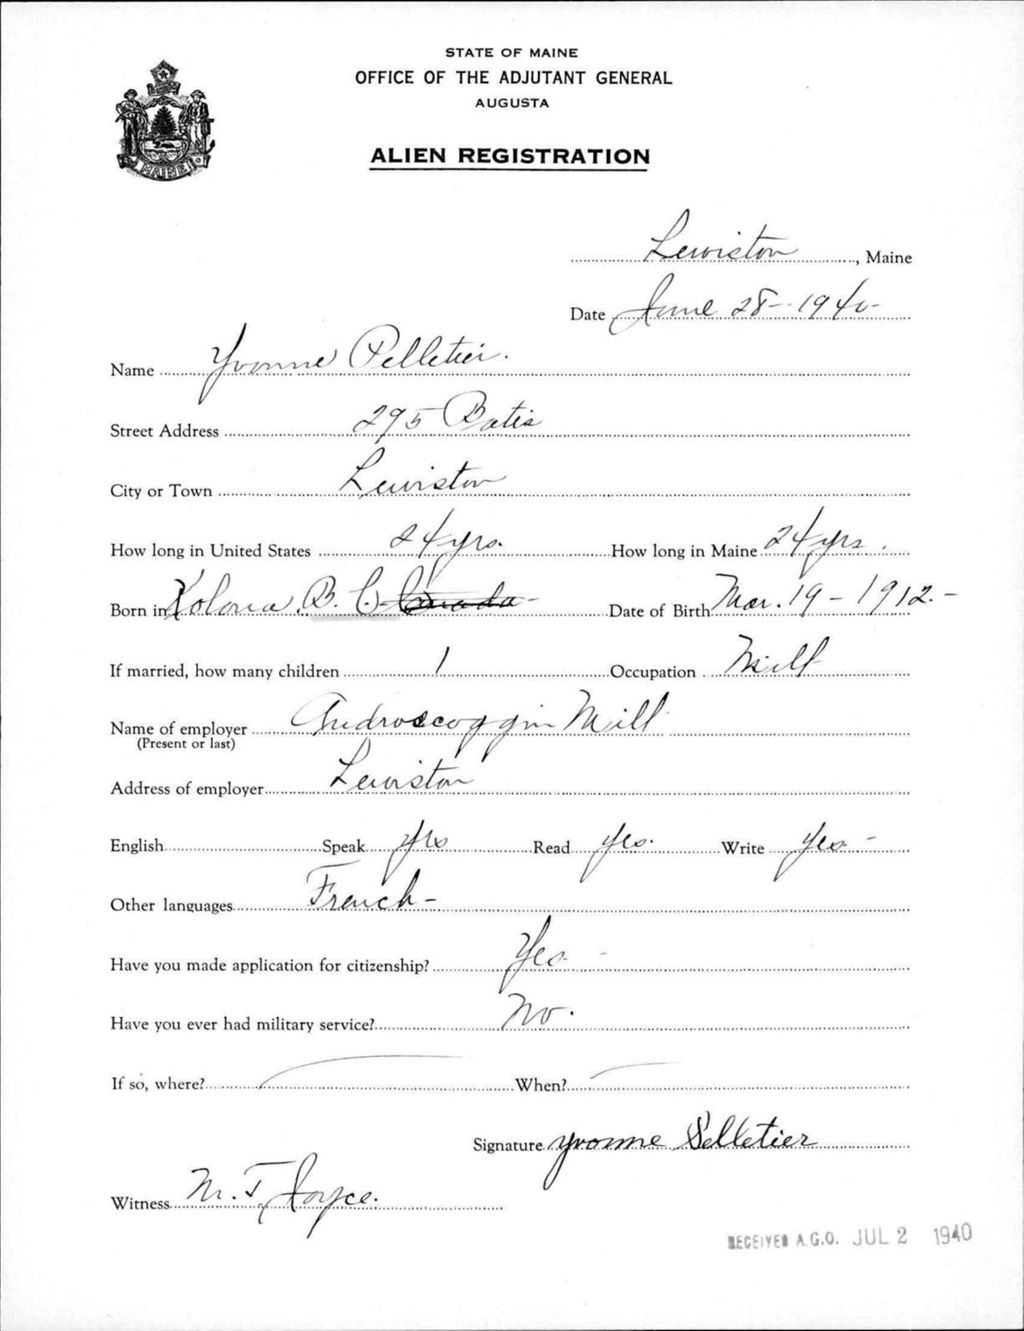 STATE OF MAINE
OFFICE OF THE ADJUTANT GENERAL
AUGUSTA
ALIEN REGISTRATION
MAINE
Lewiston, Maine
Date June 28-1940-
Name Yvonne Pelletier.
Street Address 295 Bates
City or Town Lewiston
How long in United States 24 yrs. How long in Maine 24 yrs.
Born in B. C. Canada - Date of Birth Mar. 19 - 1912. -
If married, how many children 1 Occupation Mill
Name of employer Androscoggin Mill
(Present or last)
Address of employer Lewiston
English Speak yes Read yes. Write yes -
Other languages French -
Have you made application for citizenship? Yes -
Have you ever had military service? No.
If so, where? When?
Signature Yvonne Pelletier
Witness Joyce.
RECEIVED A.G.O. JUL 2 1940